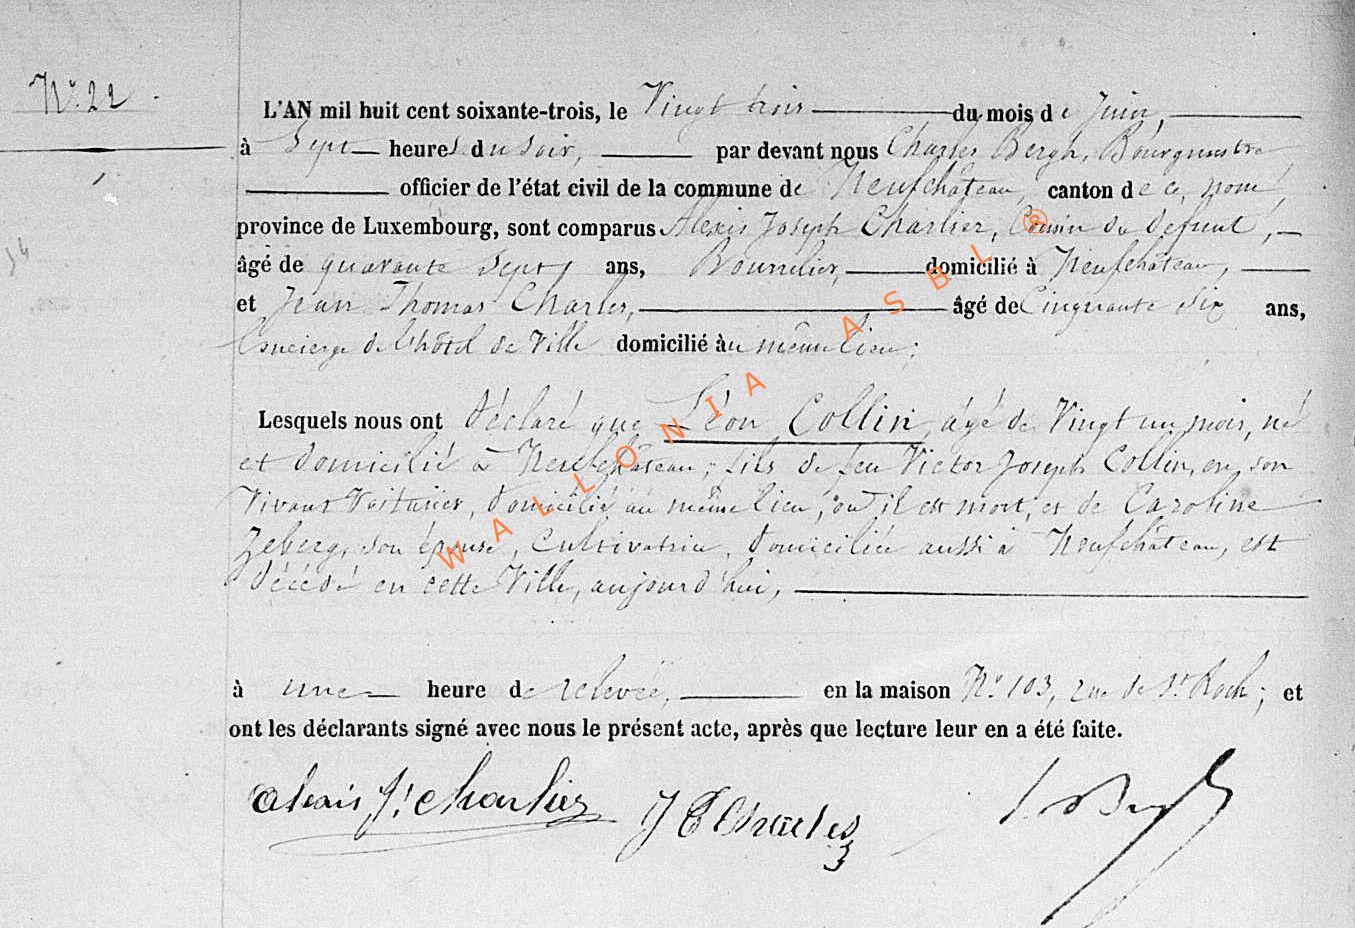 N° 22
L'AN mil huit cent soixante-trois, le Vingt trois du mois de Juin,
à Sept heures du soir, par devant nous Charles Bergh, Bourgmestre
officier de l'état civil de la commune de Neufchâteau, canton de ce nom,
province de Luxembourg, sont comparus Alexis Joseph Charlier, Cousin du défunt,
âgé de quarante sept ans, Bourrelier, domicilié à Neufchâteau,
et Jean Thomas Charles, âgé de Cinquante six ans,
Concierge de l'hôtel de Ville domicilié au même lieu;
Lesquels nous ont déclaré que Léon Collin, âgé de Vingt un mois, né
et domicilié à Neufchâteau, fils de feu Victor Joseph Collin, en son
vivant Voiturier, domicilié au même lieu, où il est mort, et de Caroline
Zeberg, son épouse, Cultivatrice, domiciliée aussi à Neufchâteau, est
décédé en cette Ville, aujourd'hui,
à une heure de relevée, en la maison N° 103, rue de St Roch; et
ont les déclarants signé avec nous le présent acte, après que lecture leur en a été faite.
Alexis J. Charlier J T Charles
WALLONIA ASBL ®